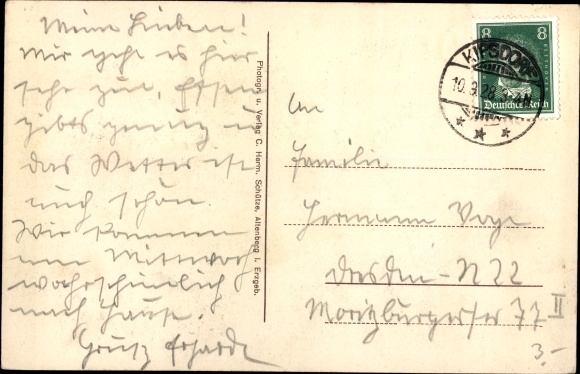 Meine Lieben!
Mir geht es hier
sehr gut, Essen
gibts genug u
das Wetter ist
auch schön.
Wir kommen
am Mittwoch
wahrscheinlich
nach Hause.
Gruß Erhardt
Photogr. u. Verlag C. Herm. Schütze, Altenberg i. Erzgeb.
8 8
Deutsches Reich
KIPSDORF
10.3.28
An
Familie
Hermann Voge
Dresden-N 22
Moritzburgerstr 77 II
3.-